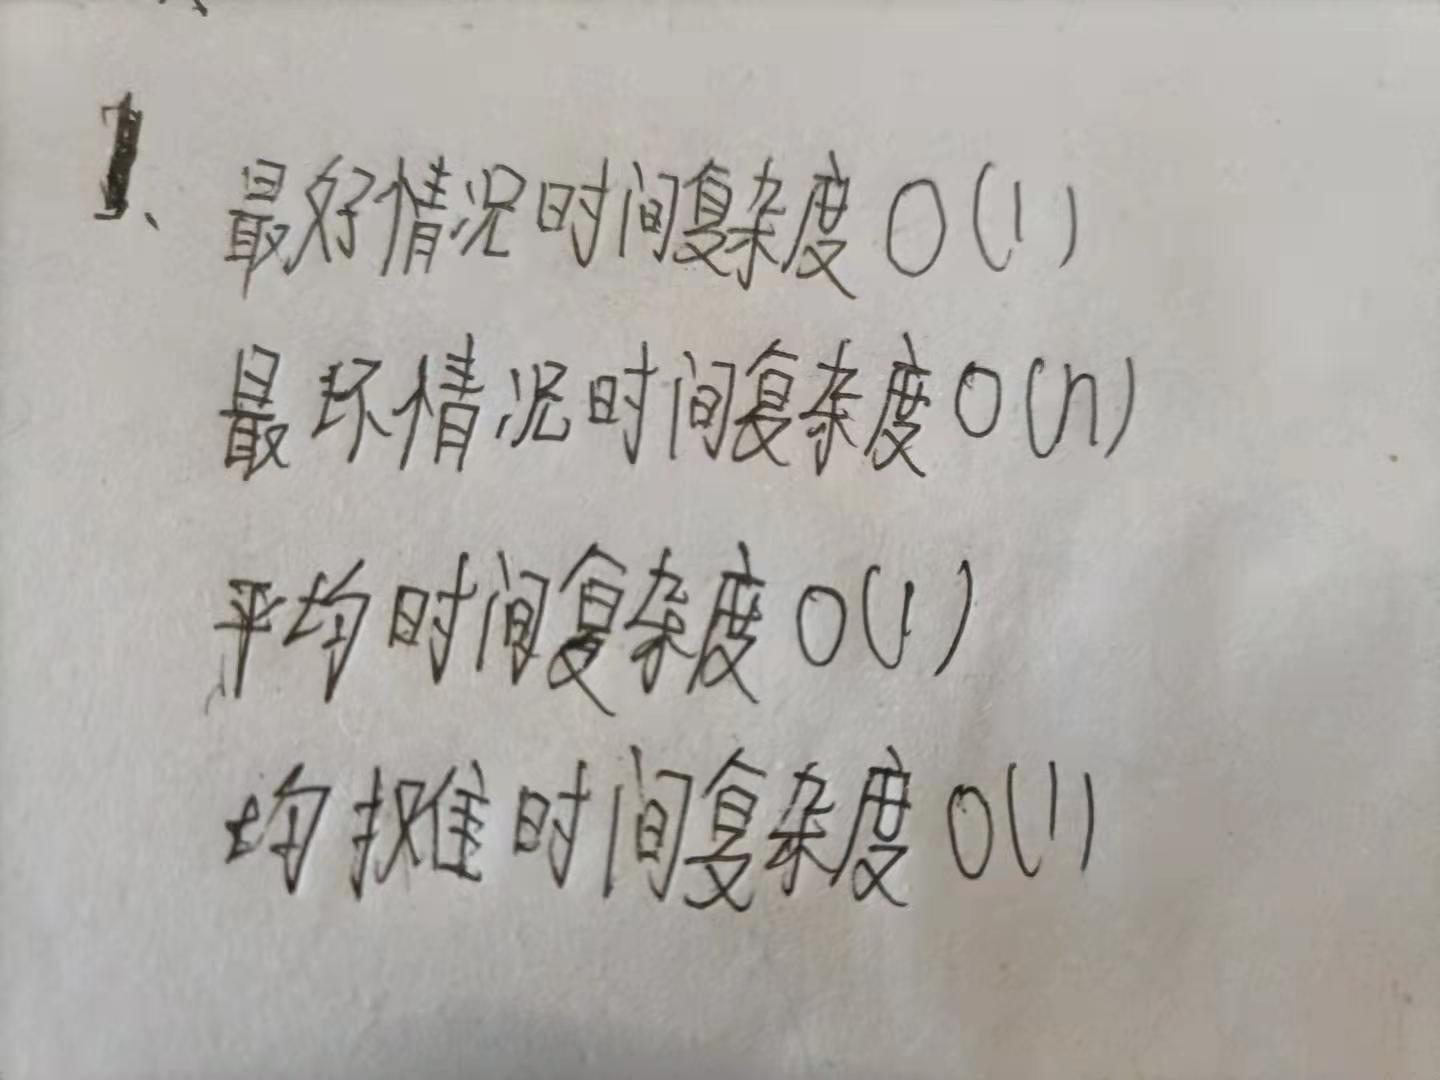 1、最好情况时间复杂度 O(1)
最坏情况时间复杂度 O(n)
平均时间复杂度 O(1)
均摊时间复杂度 O(1)